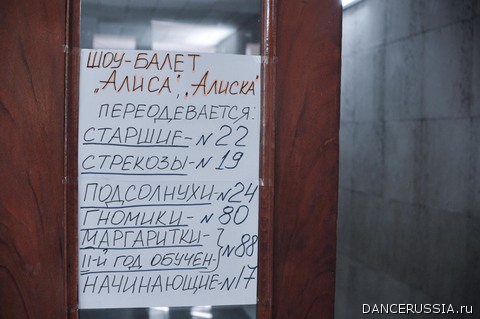 ШОУ-БАЛЕТ
„АЛИСА", „АЛИСКА"
ПЕРЕОДЕВАЕТСЯ:
СТАРШИЕ-N22
СТРЕКОЗЫ-N19
ПОДСОЛНУХИ-N24
ГНОМИКИ-N80
МАРГАРИТКИ-
II-Й ГОД ОБУЧЕН-
N88
НАЧИНАЮЩИЕ-N17
DANCERUSSIA.ru